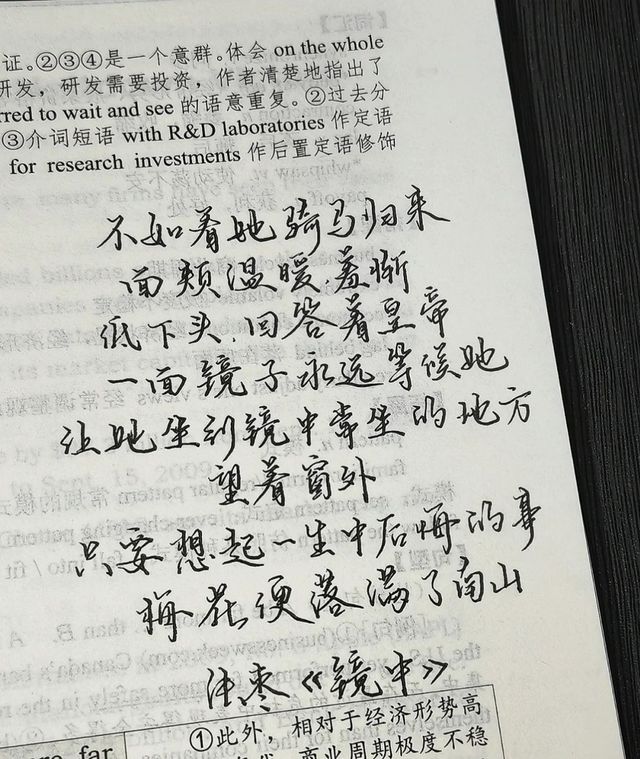 证。②③④是一个意群。体会 on the whole
研发，研发需要投资，作者清楚地指出了
rred to wait and see 的语意重复。②过去分
③介词短语 with R&D laboratories 作定语
for research investments 作后置定语修饰
不如看她骑马归来
面颊温暖，羞惭
低下头，回答着皇帝
一面镜子永远等候她
让她坐到镜中常坐的地方
望着窗外
只要想起一生中后悔的事
梅花便落满了南山
张枣《镜中》
①此外，相对于经济形势高
商业周期极度不稳
far